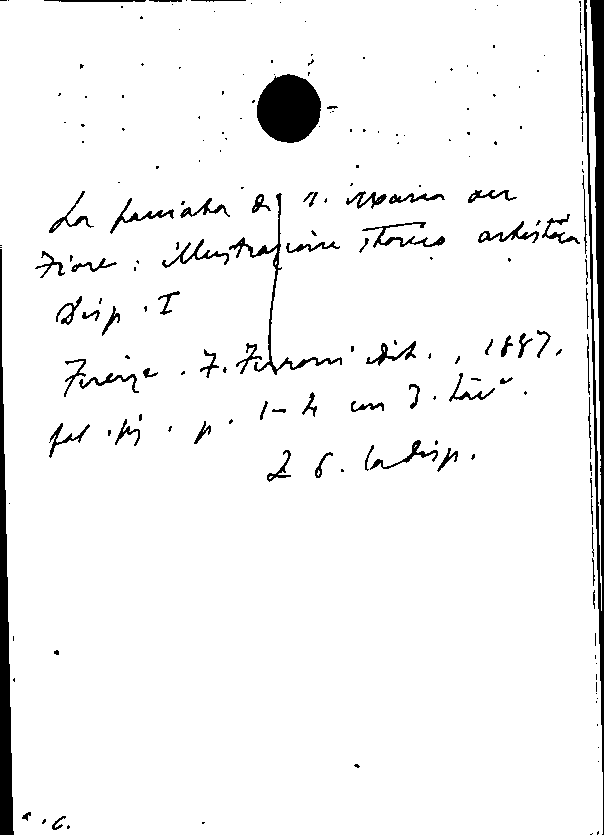 La facciata di S. Maria del
Fiore : illustrazione storico artistica
Disp. I
Firenze. F. Ferroni edit., 1887.
fol. fig. p. 1-4 con 3. tav.
L 6. la disp.